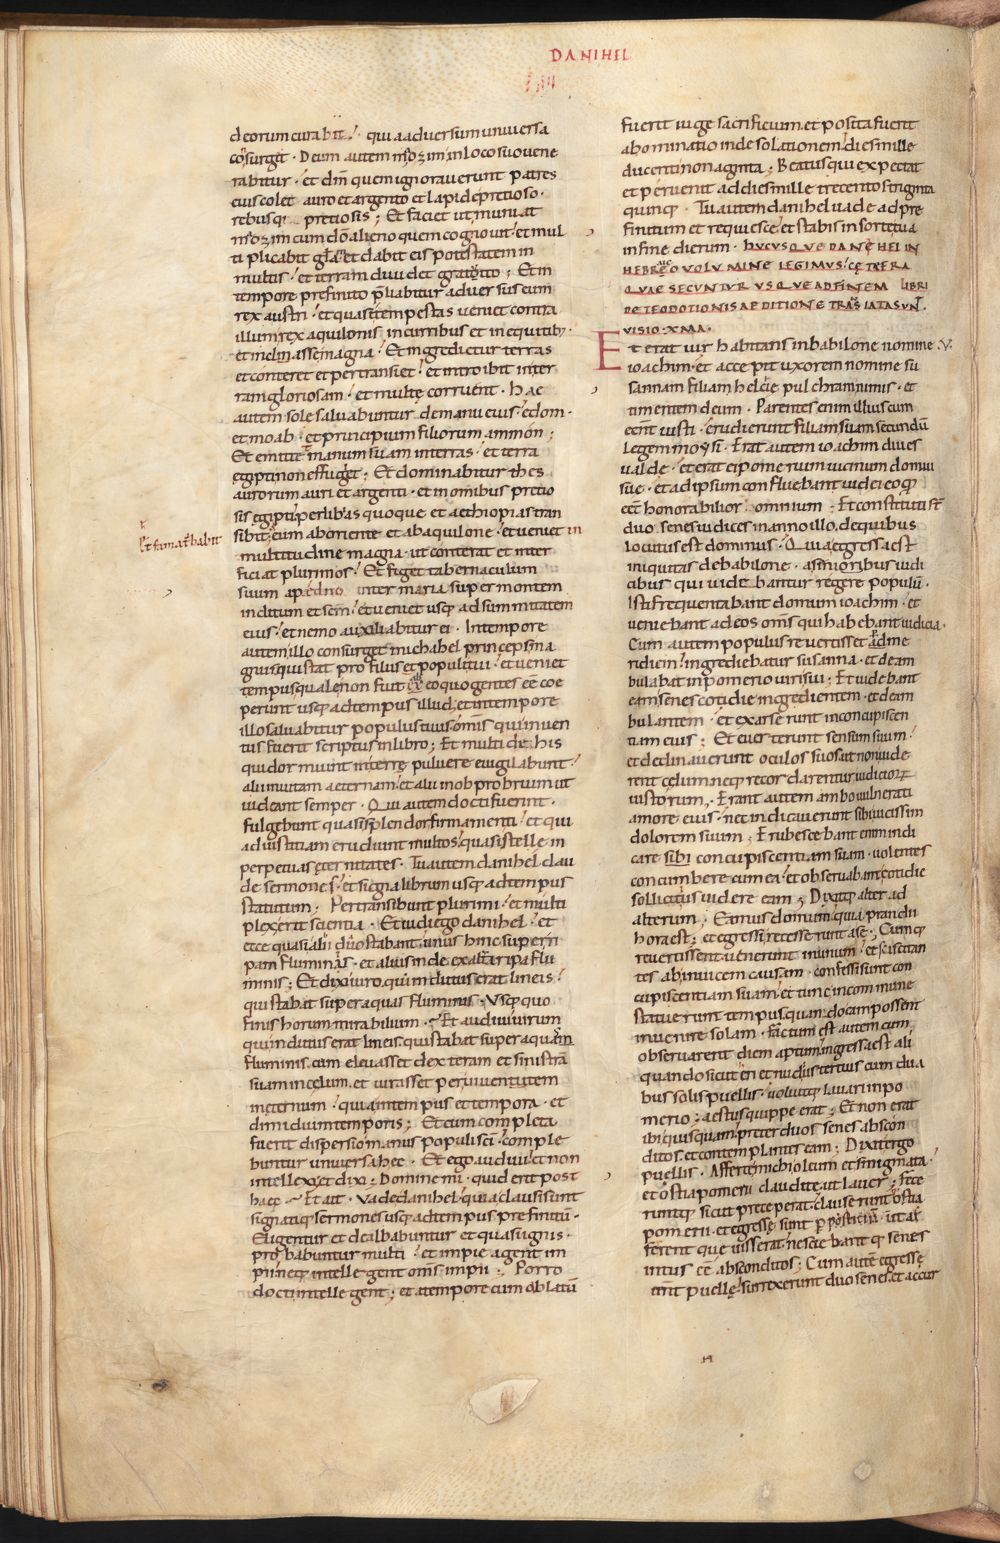 DANIHEL
deorum curabit · quia adversum universa
cōsurget · Deum autem mᷤozim in loco suo vene
rabitur · et dm̄ quem ignoraverunt patres
eius colet auro et argento et lapide pretioso ·
rebusq; pretiosis ; Et faciet ut muniat
mᷤozim cum dō alieno quem cognovit · et mul
tiplicabit glām · et dabit eis potestatem in
multis · et terram dividet gratuito ; Et in
tempore prefinito p̄liabitur adversus eum
rex austri · et quasi tempestas veniet contra
illum rex aquilonis · in curribus et in equitib; ·
et in classe magna · Et ingredietur terras
et conteret et pertransiet · et introibit in ter
ram gloriosam · et multę corruent · Hae
autem sole salvabuntur de manu eius · edom ·
et moab · et principium filiorum ammon ;
Et emittet manum suam in terras · et terra
egipti non effuget ; Et dominabitur thes
aurorum auri et argenti · et in omnibus pretio
sis ęgipti · per libias quoque et aethiopias tran
sibit · et fama t̄babit eum ab oriente et ab aquilone · et veniet in
multitudine magna · ut conterat et inter
ficiat plurimos · Et figet tabernaculum
suum apędno inter maria super montem
inclitum et scm̄ · et veniet usq; ad summitatem
eius · et nemo auxiliabitur ei · In tempore
autem illo consurget michahel princeps ma
gnus qui stat pro filiis populi tui · et veniet
tempus quale non fuit ex eo quo gentes eē coe
perunt usq; ad tempus illud · et in tempore
illo salvabitur populus tuus · omīs qui inven
tus fuerit scriptus in libro ; Et multi de his
qui dormiunt in terrę pulvere evigilabunt ·
alii in vitam aeternam · et alii in obprobrium ut
videant semper · Qui autem docti fuerint ·
fulgebunt quasi splendor firmamenti · et qui
ad iustitiam erudiunt multos · quasi stelle in
perpetuas ęternitates · Tu autem danihel clau
de sermones · et signa librum usq; ad tempus
statutum · Pertransibunt plurimi · et multi
plex erit scientia · Et vidi ego danihel · et
ecce quasi alii duo stabant · unus hinc super ri
pam fluminis · et alius inde ex altera ripa flu
minis ; Et dixi viro qui indutus erat lineis ·
qui stabat super aquas fluminis · Usq; quo
finis horum mirabilium · Et audivi virum
qui indutus erat lineis · qui stabat super aquam
fluminis · cum elevasset dexteram et sinistrā
suam in celum · et iurasset per viventem
in eternum · quia in tempus et tempora · et
dimidium temporis ; Et cum completa
fuerit dispersio manus populi sc̄i · comple
buntur universa hec · Et ego audivi · et non
intellexi · et dixi ; Domine mi · quid erit post
haec · Et ait · Vade danihel · quia clausi sunt
signatiq; sermones usq; ad tempus prefinitū ·
Eligentur et dealbabuntur et quasi ignis ·
probabuntur multi · et impie agent im
pii · neq; intellegent omīs impii ; Porro
docti intellegent ; et a tempore cum oblatū
fuerit iuge sacrificium · et posita fuerit
abominatio in desolationem · dies mille
ducenti nonaginta ; Beatus qui expectat
et pervenit ad dies mille trecentos triginta
quinq; · Tu autem danihel vade ad pre
finitum et requiesce · et stabis in sorte tua
in fine dierum · HUCUSQUE DANIHEL IN
HEBREO VOLUMINE LEGIMUS · CĘTERA
QUAE SECUNTUR USQUE AD FINEM LIBRI
DE TEODOTIONIS AEDITIONE TRĀSLATA SUN̄T ·
VISIO · XMA ·
Et erat vir habitans in babilone nomine
ioachim · et accepit uxorem nomine su
sannam filiam helcię pulchram nimis · et
timentem deum · Parentes enim illius cum
eēnt iusti · erudierunt filiam suam secundū
legem moysi · Erat autem ioachim dives
valde · et erat ei pomerium vicinum domui
sue · et ad ipsum confluebant iudei · eo q̄
eēt honorabilior omnium ; Et constituti st̄
duo senes iudices in anno illo · de quibus
locutus est dominus · Quia egressa est
iniquitas de babilone · a senioribus iudi
cibus qui videbantur regere populū ·
Isti frequentabant domum ioachim · et
veniebant ad eos omīs qui habebant iudicia ·
Cum autem populus revertisset p̄ ad me
ridiem · ingrediebatur susanna · et deam
bulabat in pomerio viri sui ; Et videbant
eam senes cotidie ingredientem · et deam
bulantem · et exarserunt in concupiscen
tiam eius ; Et everterunt sensum suum ·
et declinaverunt oculos suos · ut non vide
rent cęlum · neq; recordarentur iudiciorꝝ
iustorum · Erant autem ambo vulnerati
amore eius · nec indicaverunt sibi vicissim
dolorem suum ; Erubescebant enim indi
care sibi concupiscentiam suam · volentes
concumbere cum ea · et observabant cotidie
sollicitius videre eam ; Dixitq; alter ad
alterum ; Eamus domum · quia prandii
hora est ; et egressi recesserunt a se ; Cumq;
revertissent · venerunt in unum · et sciscitan
tes ab invicem causam · confessi sunt con
cupiscentiam suam · et tunc in commune
statuerunt tempus · quando eam possent
invenire solam · Factum est autem cum
observarent diem aptum · ingressa est ali
quando sicut eri et nudius tertius cum dua
bus solis puellis · voluitq; lavari in po
merio ; aestus quippe erat ; Et non erat
ibi quisquam preter duos senes abscon
ditos · et contemplantes eam ; Dixit ergo
puellis · Afferte michi oleum et smigmata ·
et ostia pomerii claudite ut laver ; Fece
runtq; sicut preceperat · clauseruntq; ostia
pomerii · et egresse sunt p̄ posticiū · ut af
ferent que iusserat · nesciebantq; senes
intus eē absconditos ; Cum autē egresse
eēnt puellę · surrexerunt duo senes · et accur